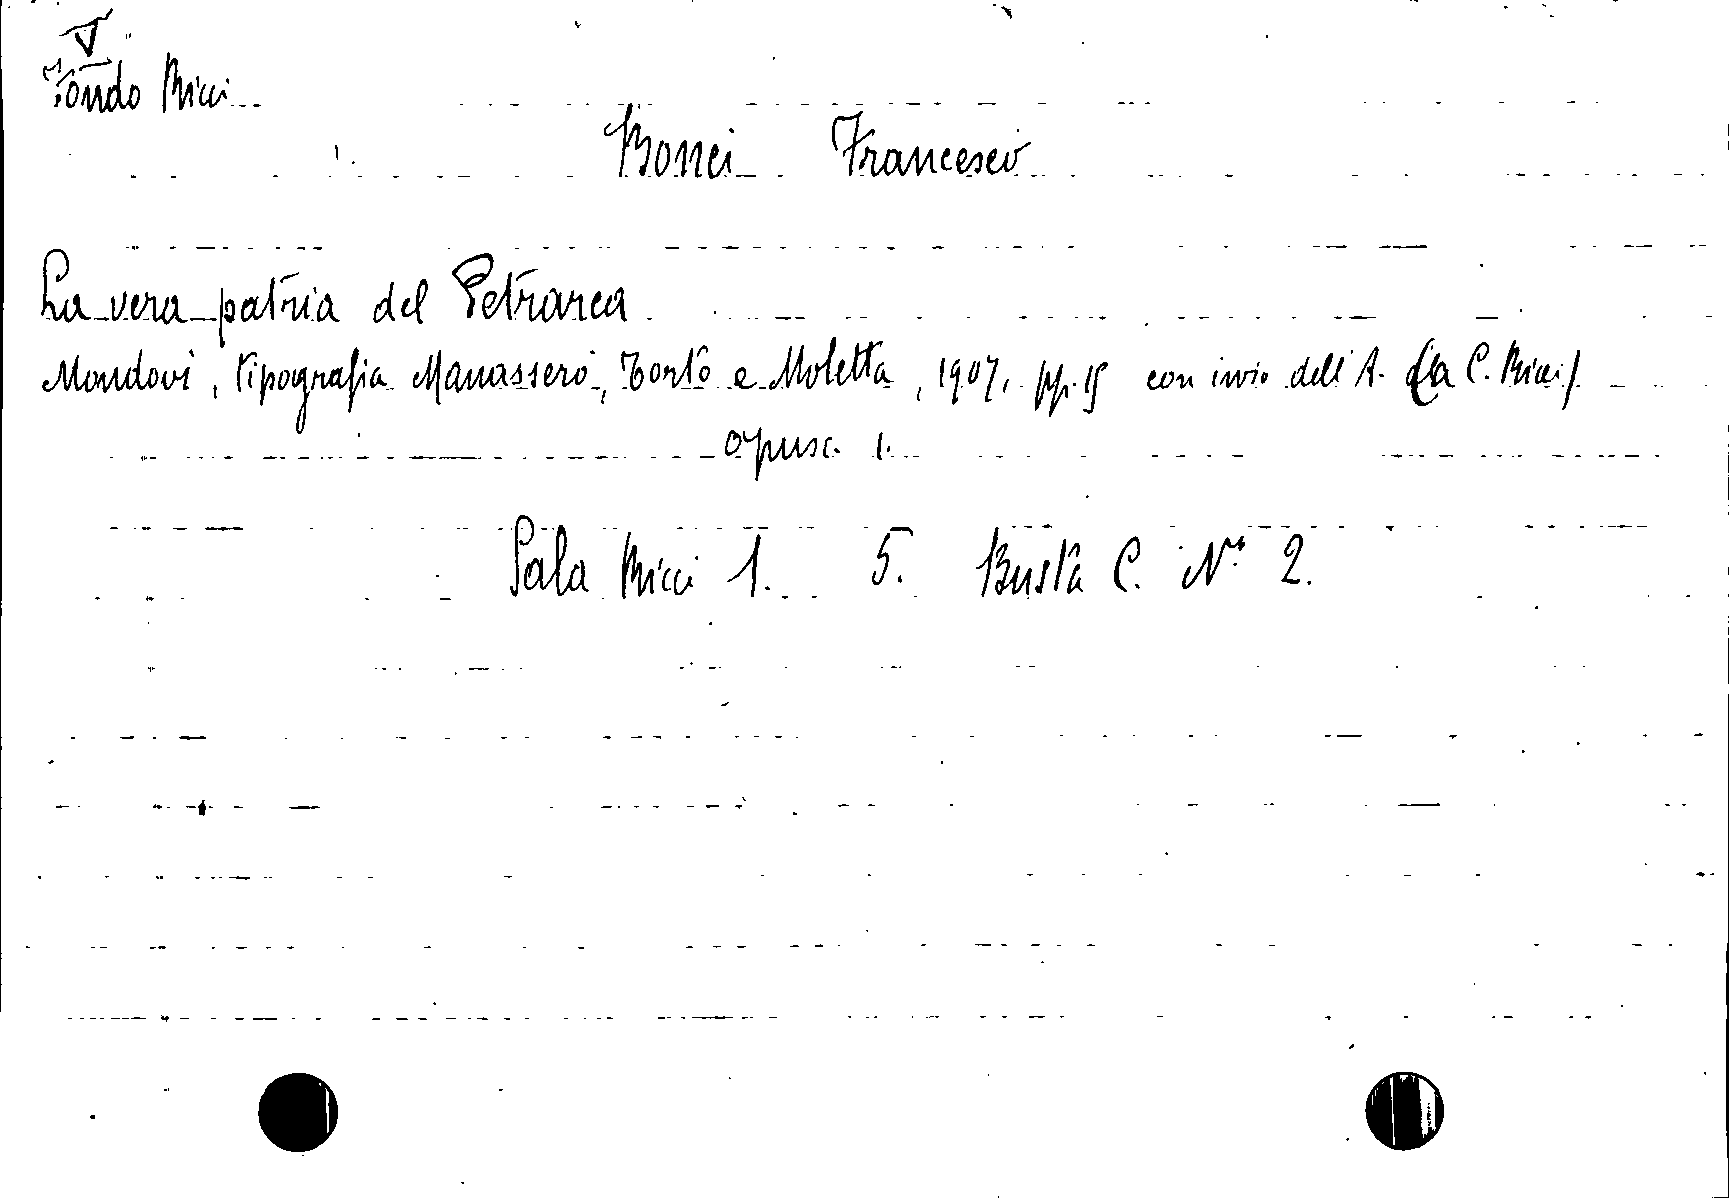 V
Fondo Ricci
Bonci Francesco
La vera patria del Petrarca
Mondovi, tipografia Manassero, Torto e Moletta, 1907. pp. 15 con invio dell'A. (a C. Ricci)
opusc. 1.
Sala Ricci 1. 5. Busta C. N° 2.